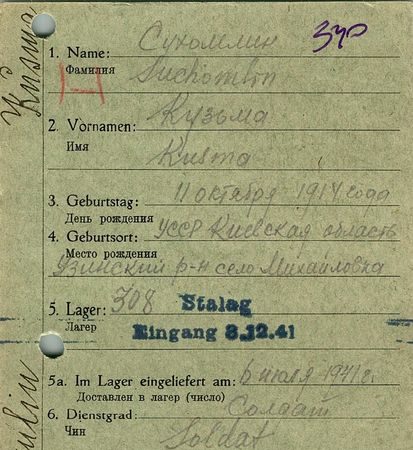 Kusma
зур
Сухомлин
1. Name:
Фамилия
Suchomlin
Кузьма
2. Vornamen:
Имя
Kusma
3. Geburtstag: 11 октября 1914 года
День рождения
4. Geburtsort: УССР Киевская область
Место рождения
Узинский р-н село Михайловка
5. Lager: 308 Stalag
Лагерь
Eingang 3.12.41
5a. Im Lager eingeliefert am: 6 июля 1941 г.
Доставлен в лагерь (число)
6. Dienstgrad: Солдат
Чин
Soldat